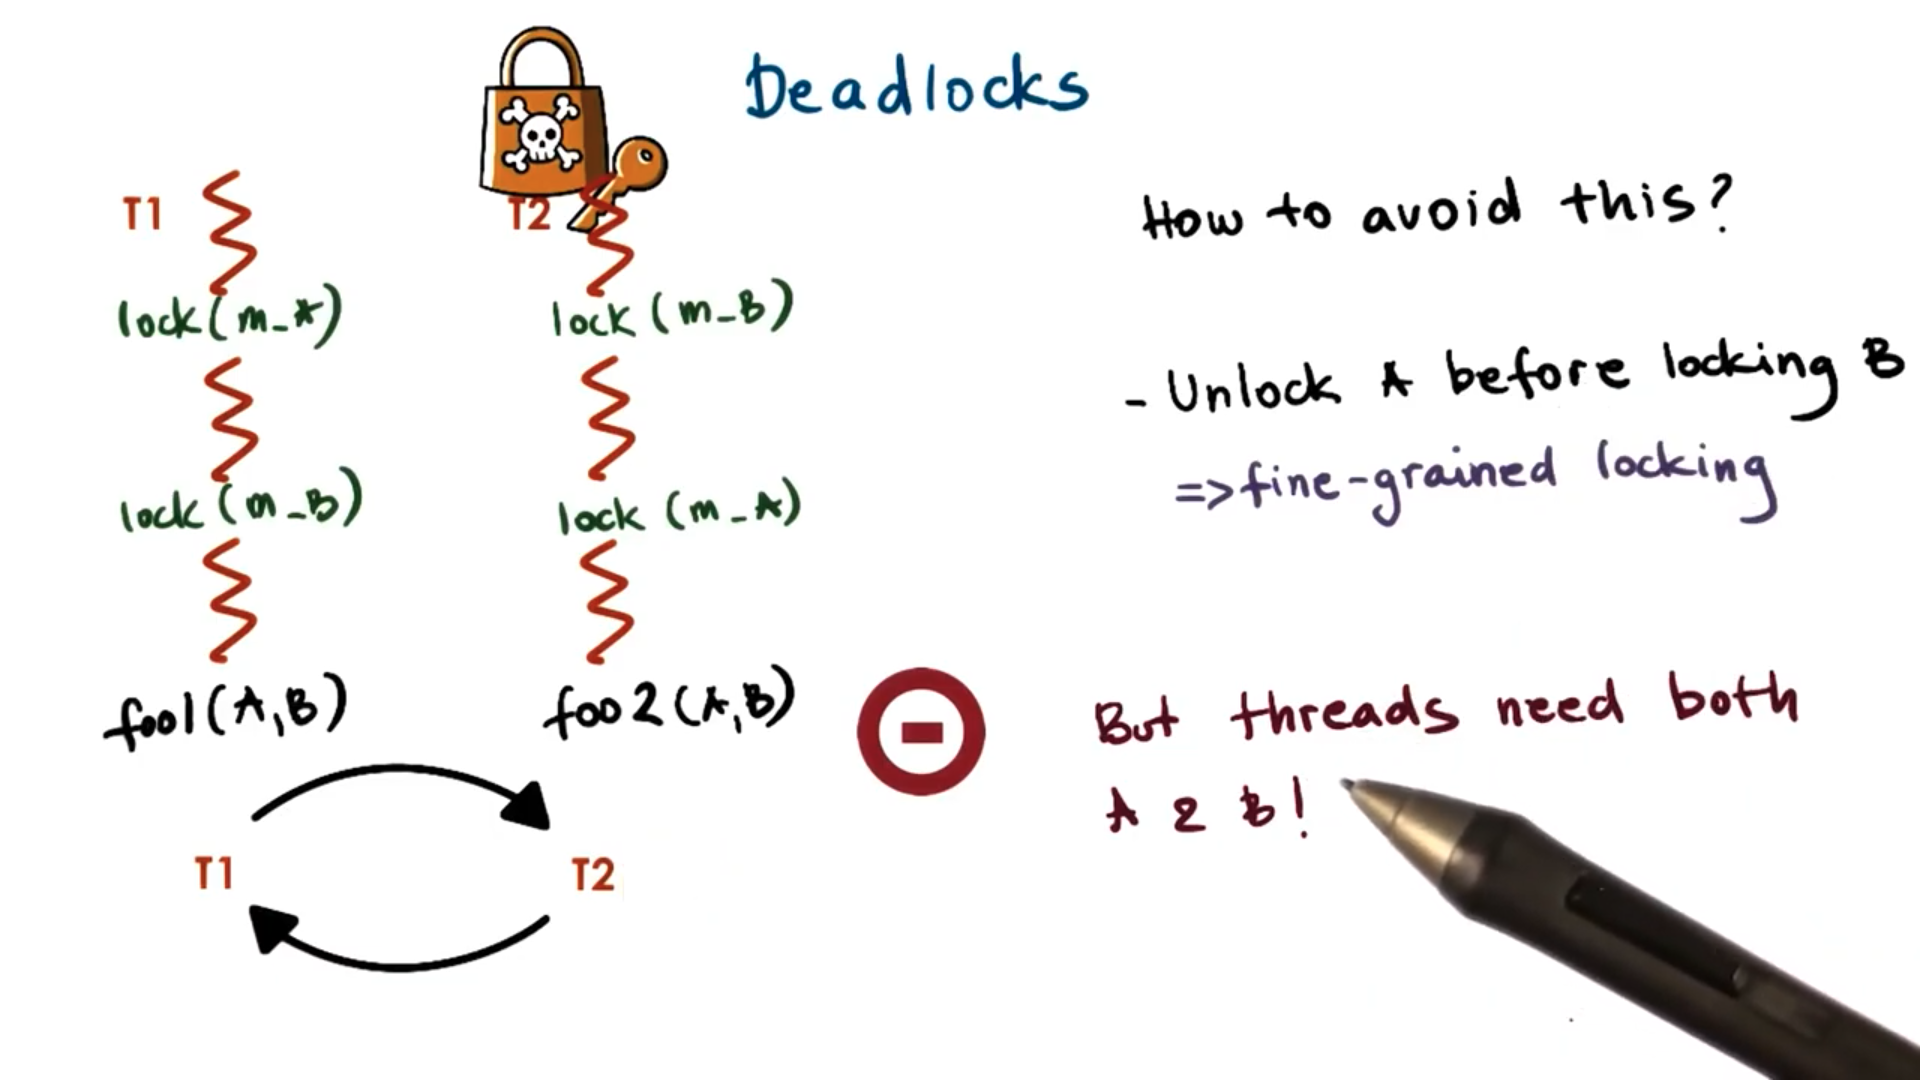 Deadlocks
T1
T2
lock(m_A)
lock(m_B)
lock(m_B)
lock(m_A)
foo1(A,B)
foo2(A,B)
T1
T2
How to avoid this?
- Unlock A before locking B
=> fine-grained locking
But threads need both
A & B!